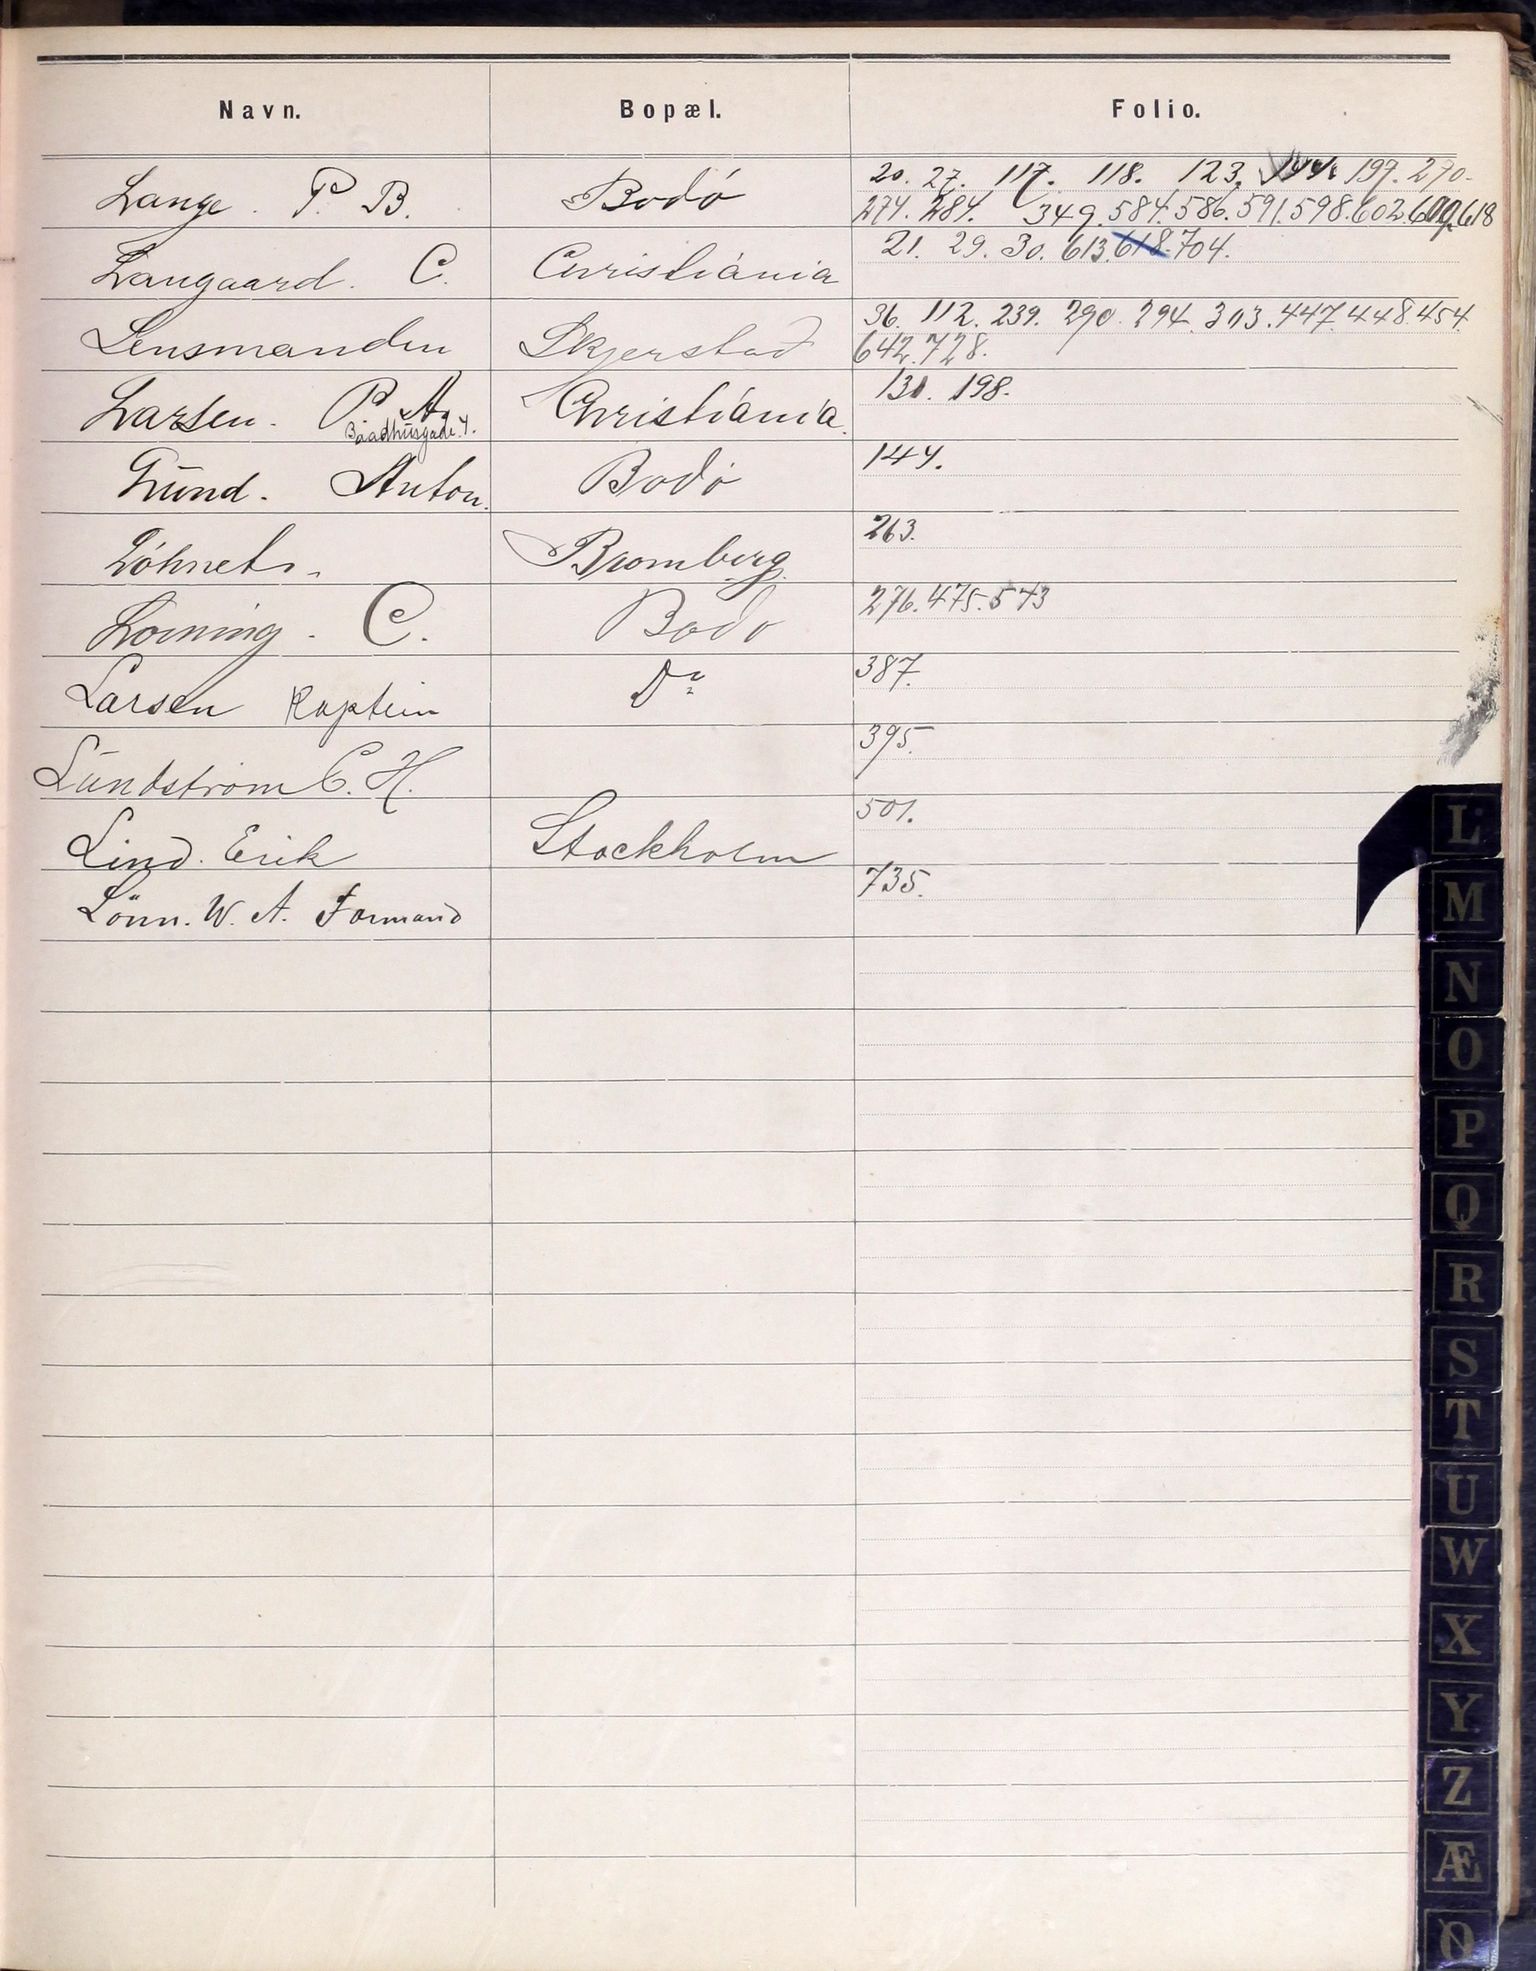 Navn. Bopæl. Folio.
Lange. P. B. Bodó 20. 27. 117. 118. 123. 144. 197. 270.
274. 284. 349. 584. 586. 591. 598. 602. 609. 618
Langaard. C. Christiánia 21. 29. 30. 613. 618. 704.
Lensmanden Skjerstad 36. 112. 239. 290. 294. 303. 447. 448. 454.
642. 728.
Larsen. P. A. Christiánia. 130. 198.
Raadhusgade. 4.
Lund. Anton. Bodó 144.
Bromberg. 263.
C. Bodó 276. 475. 573
Larsen Kaptein Do 387.
Lundstrøm C. H. 395.
Lind. Erik Stockholm 501.
Lönn. W. A. Formand 735.
L
M
N
O
P
Q
R
S
T
U
W
X
Y
Z
Æ
Ø